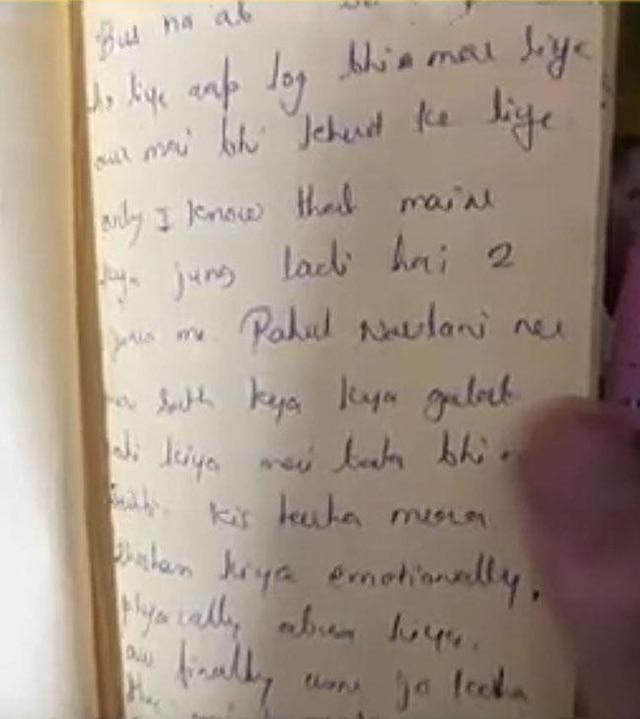 But no ab
liye aap log bhi mere liye
aur mai bhi khud ke liye
only I know that maine
kya jung ladi hai 2
me Rahul Navlani ne
sath kya kya galat
kiya mai bata bhi
Kis tarha mera
kiya emotionally,
physically abuse kiya.
aur finally usne jo kaha